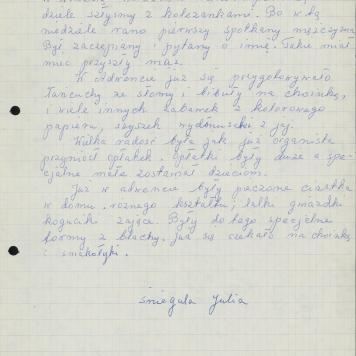 dziele szłyśmy z koleżankami. Bo w tą
niedziele rano pierwszy spotkany mężczyzna
Był zaczepiany i pytany o imię. Takie miał
mieć przyszły mąż.
W Adwencie już się przygotowywało
Łańcuchy ze słomy i bibuły na choinkę,
i wiele innych zabawek z kolorowego
papieru, szyszek wydmuszki z jaj.
Wielka radość była jak już organista
przyniósł opłatek. Opłatki były duże a spe-
cjalne małe zostawiał dzieciom.
Już w adwencie były pieczone ciastka
w domu, rożnego kształtu; lalki gwiazdki
koguciki zające. Były do tego specjalne
formy z blachy. Już się czekało na choinkę
i smakołyki.
Śniegula Julia